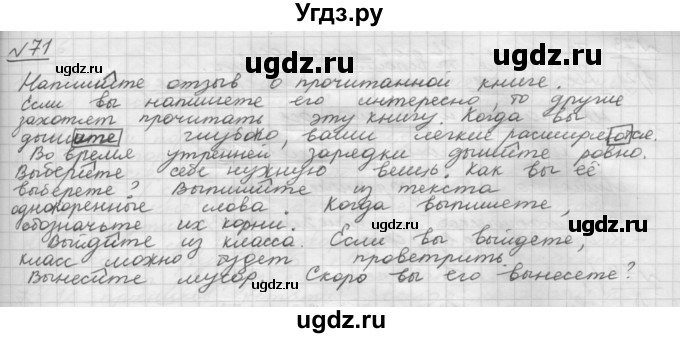 Угдз.ру
№71
Напишите отзыв о прочитанной книге.
Если вы напишете его интересно, то другие
захотят прочитать эту книгу. Когда вы
дышите глубоко, ваши легкие расширяются.
Во время утренней зарядки дышите ровно.
Выберите себе нужную вещь. Как вы её
выберете? Выпишите из текста
однокоренные слова. Когда выпишете,
обозначьте их корни.
Выйдите из класса. Если вы выйдете,
класс можно будет проветрить.
Вынесите мусор. Скоро вы его вынесете?
ugdz.ru
ugdz.ru
ugdz.ru
ugdz.ru
ugdz.ru
ugdz.ru
ugdz.ru
ugdz.ru
ugdz.ru
ugdz.ru
ugdz.ru
ugdz.ru
ugdz.ru